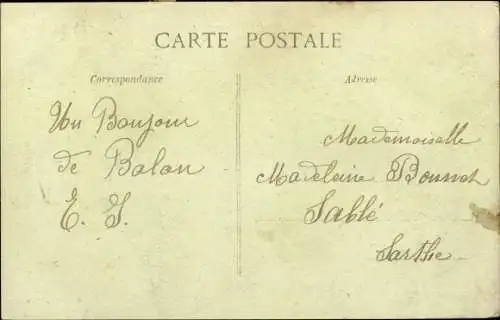 CARTE POSTALE
Correspondance
Adresse
Un Bonjour
de Balan
E. S.
Mademoiselle
Madeleine Bonnot
Sablé
Sarthe